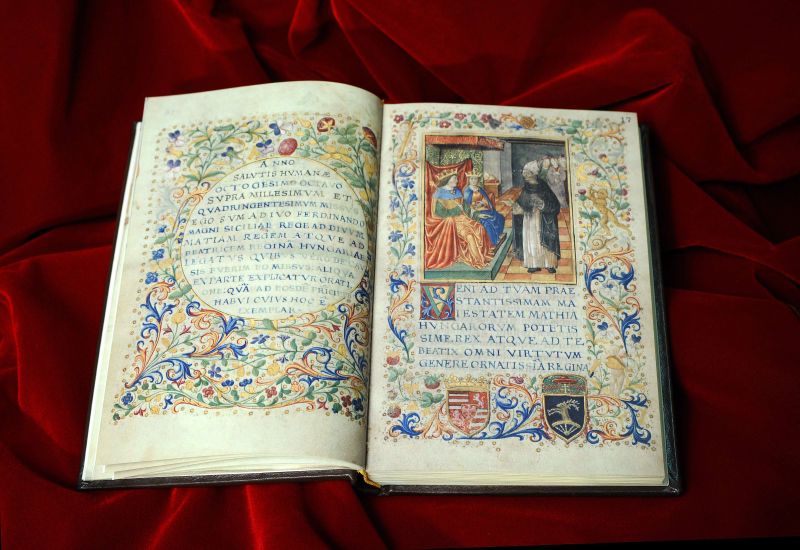 ANNO
SALVTIS HVMANÆ
OCTOGESIMO OCTAVO
SVPRA MILLESIMVM ET
QVADRINGENTESIMVM MISSVS
EGO SVM A DIVO FERDINANDO
MAGNI SICILIAE REGE AD DIVVM
MATIAM REGEM ATQVE AD
BEATRICEM REGINA HVNGARIAE
LEGATVS QVIBVS VERO DE
SIS FVERIM EO MISSVS ALIQVA
EX PARTE EXPLICATVR ORATI
ONE QVĀ AD EOSDE
HABVI CVIVS HOC Ē
EXEMPLAR
17
VENI AD TVAM PRAE
STANTISSIMAM MA
IESTATEM MATHIA
HVNGARORVM POTĒTIS
SIME REX ATQVE AD TE
BEATIX OMNI VIRTVTVM
GENERE ORNATISSIA REGINA